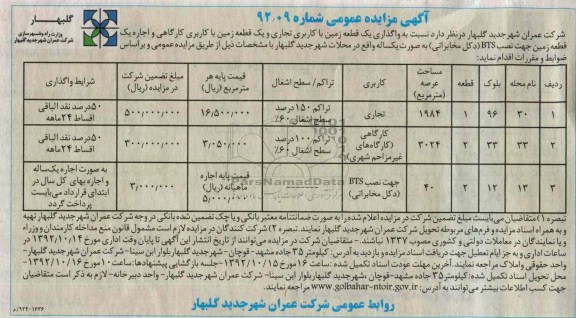 گلبهار
وزارت راه و شهرسازی
شرکت عمران شهر جدید گلبهار
آگهی مزایده عمومی شماره ۹۲،۰۹
شرکت عمران شهرجدید گلبهار درنظر دارد نسبت به واگذاری یک قطعه زمین با کاربری تجاری و یک قطعه زمین با کاربری کارگاهی و اجاره یک
قطعه زمین جهت نصب BTS (دکل مخابراتی) به صورت یکساله واقع در محلات شهر جدید گلبهار با مشخصات ذیل از طریق مزایده عمومی و براساس
ضوابط و مقررات اقدام نماید:
ردیف نام محله بلوک قطعه مساحت عرصه (مترمربع) کاربری تراکم/ سطح اشغال قیمت پایه هر مترمربع (ریال) مبلغ تضمین شرکت در مزایده (ریال) شرایط واگذاری
۱ ۳۰ ۹۶ ۱ ۱۹۸۴ تجاری تراکم ۱۵۰ درصد سطح اشغال ۶۰٪ ۱۶/۵۰۰/۰۰۰ ۵۰۰/۰۰۰/۰۰۰ ۵۰درصد نقد الباقی اقساط ۲۴ماهه
۲ ۳۳ ۳۳ ۲ ۳۰۲۴ کارگاهی (کارگاه‌های غیرمزاحم شهری) تراکم ۱۰۰ درصد سطح اشغال ۶۰٪ ۳/۰۵۰/۰۰۰ ۳۰۰/۰۰۰/۰۰۰ ۵۰درصد نقد الباقی اقساط ۲۴ماهه
۳ ۱۳ ۱۲ ۲ ۴۰ جهت نصب BTS (دکل مخابراتی) قیمت پایه اجاره ماهیانه (ریال) ۵/۰۰۰/۰۰۰ ۳/۰۰۰/۰۰۰ به صورت اجاره یکساله و اجاره بهای کل سال در ابتدای قرارداد می‌بایست پرداخت گردد
ParsNamadData
تبصره ۱) متقاضیان می‌بایست مبلغ تضمین شرکت در مزایده اعلام شده را به صورت ضمانتنامه معتبر بانکی و یا چک تضمین شده بانکی در وجه شرکت عمران شهر جدید گلبهار تهیه
و به همراه اسناد مزایده و فرم‌های مربوطه تحویل شرکت عمران شهرجدید گلبهار نمایند. تبصره ۲) شرکت کنندگان در مزایده لازم است مشمول قانون منع مداخله کارمندان و وزراء
و یا نمایندگان در معاملات دولتی و کشوری مصوب ۱۳۳۷ نباشند.- متقاضیان شرکت در مزایده می‌توانند از تاریخ انتشار این آگهی تا پایان وقت اداری مورخ ۱۳۹۲/۱۰/۱۴ در
ساعات اداری و به جز ایام تعطیل جهت دریافت اسناد مزایده و بازدید به آدرس: کیلومتر ۳۵ جاده مشهد - قوچان - شهر جدید گلبهار بلوار ابن سینا- شرکت عمران شهرجدید گلبهار-
واحد حقوقی واملاک مراجعه نمایند. آخرین مهلت عودت اسناد تکمیل شده: ساعت ۱۶ مورخ ۱۳۹۲/۱۰/۱۵ -جلسه بازگشایی پیشنهادها: ساعت ۱۰ مورخ ۱۳۹۲/۱۰/۱۶ -
محل تحویل اسناد تکمیل شده: کیلومتر ۳۵ جاده مشهد- قوچان، شهر جدید گلبهار بلوار ابن سینا- شرکت عمران شهر جدید گلبهار- واحد دبیرخانه- لازم به ذکر است متقاضیان
جهت کسب اطلاعات بیشتر می‌توانند به آدرس: www.golbahar-ntoir.gov.ir مراجعه نمایند.
روابط عمومی شرکت عمران شهرجدید گلبهار